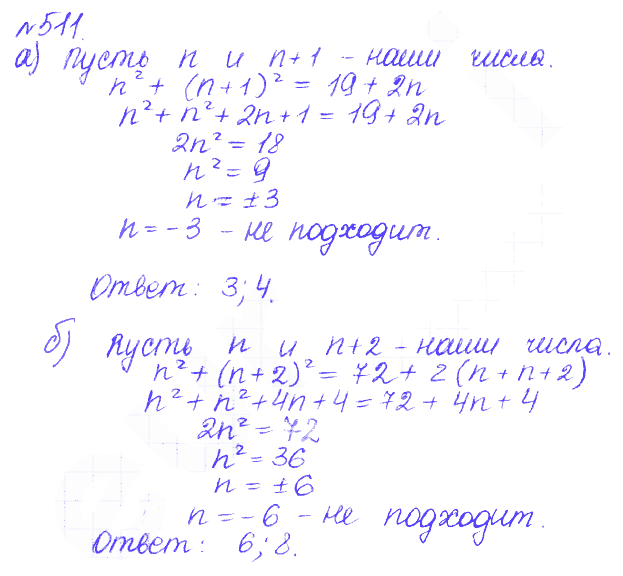 №511.
а) Пусть n и n+1 - наши числа.
n² + (n+1)² = 19 + 2n
n² + n² + 2n + 1 = 19 + 2n
2n² = 18
n² = 9
n = ±3
n = -3 - не подходит.
Ответ: 3; 4.
б) Пусть n и n+2 - наши числа.
n² + (n+2)² = 72 + 2(n + n+2)
n² + n² + 4n + 4 = 72 + 4n + 4
2n² = 72
n² = 36
n = ±6
n = -6 - не подходит.
Ответ: 6; 8.